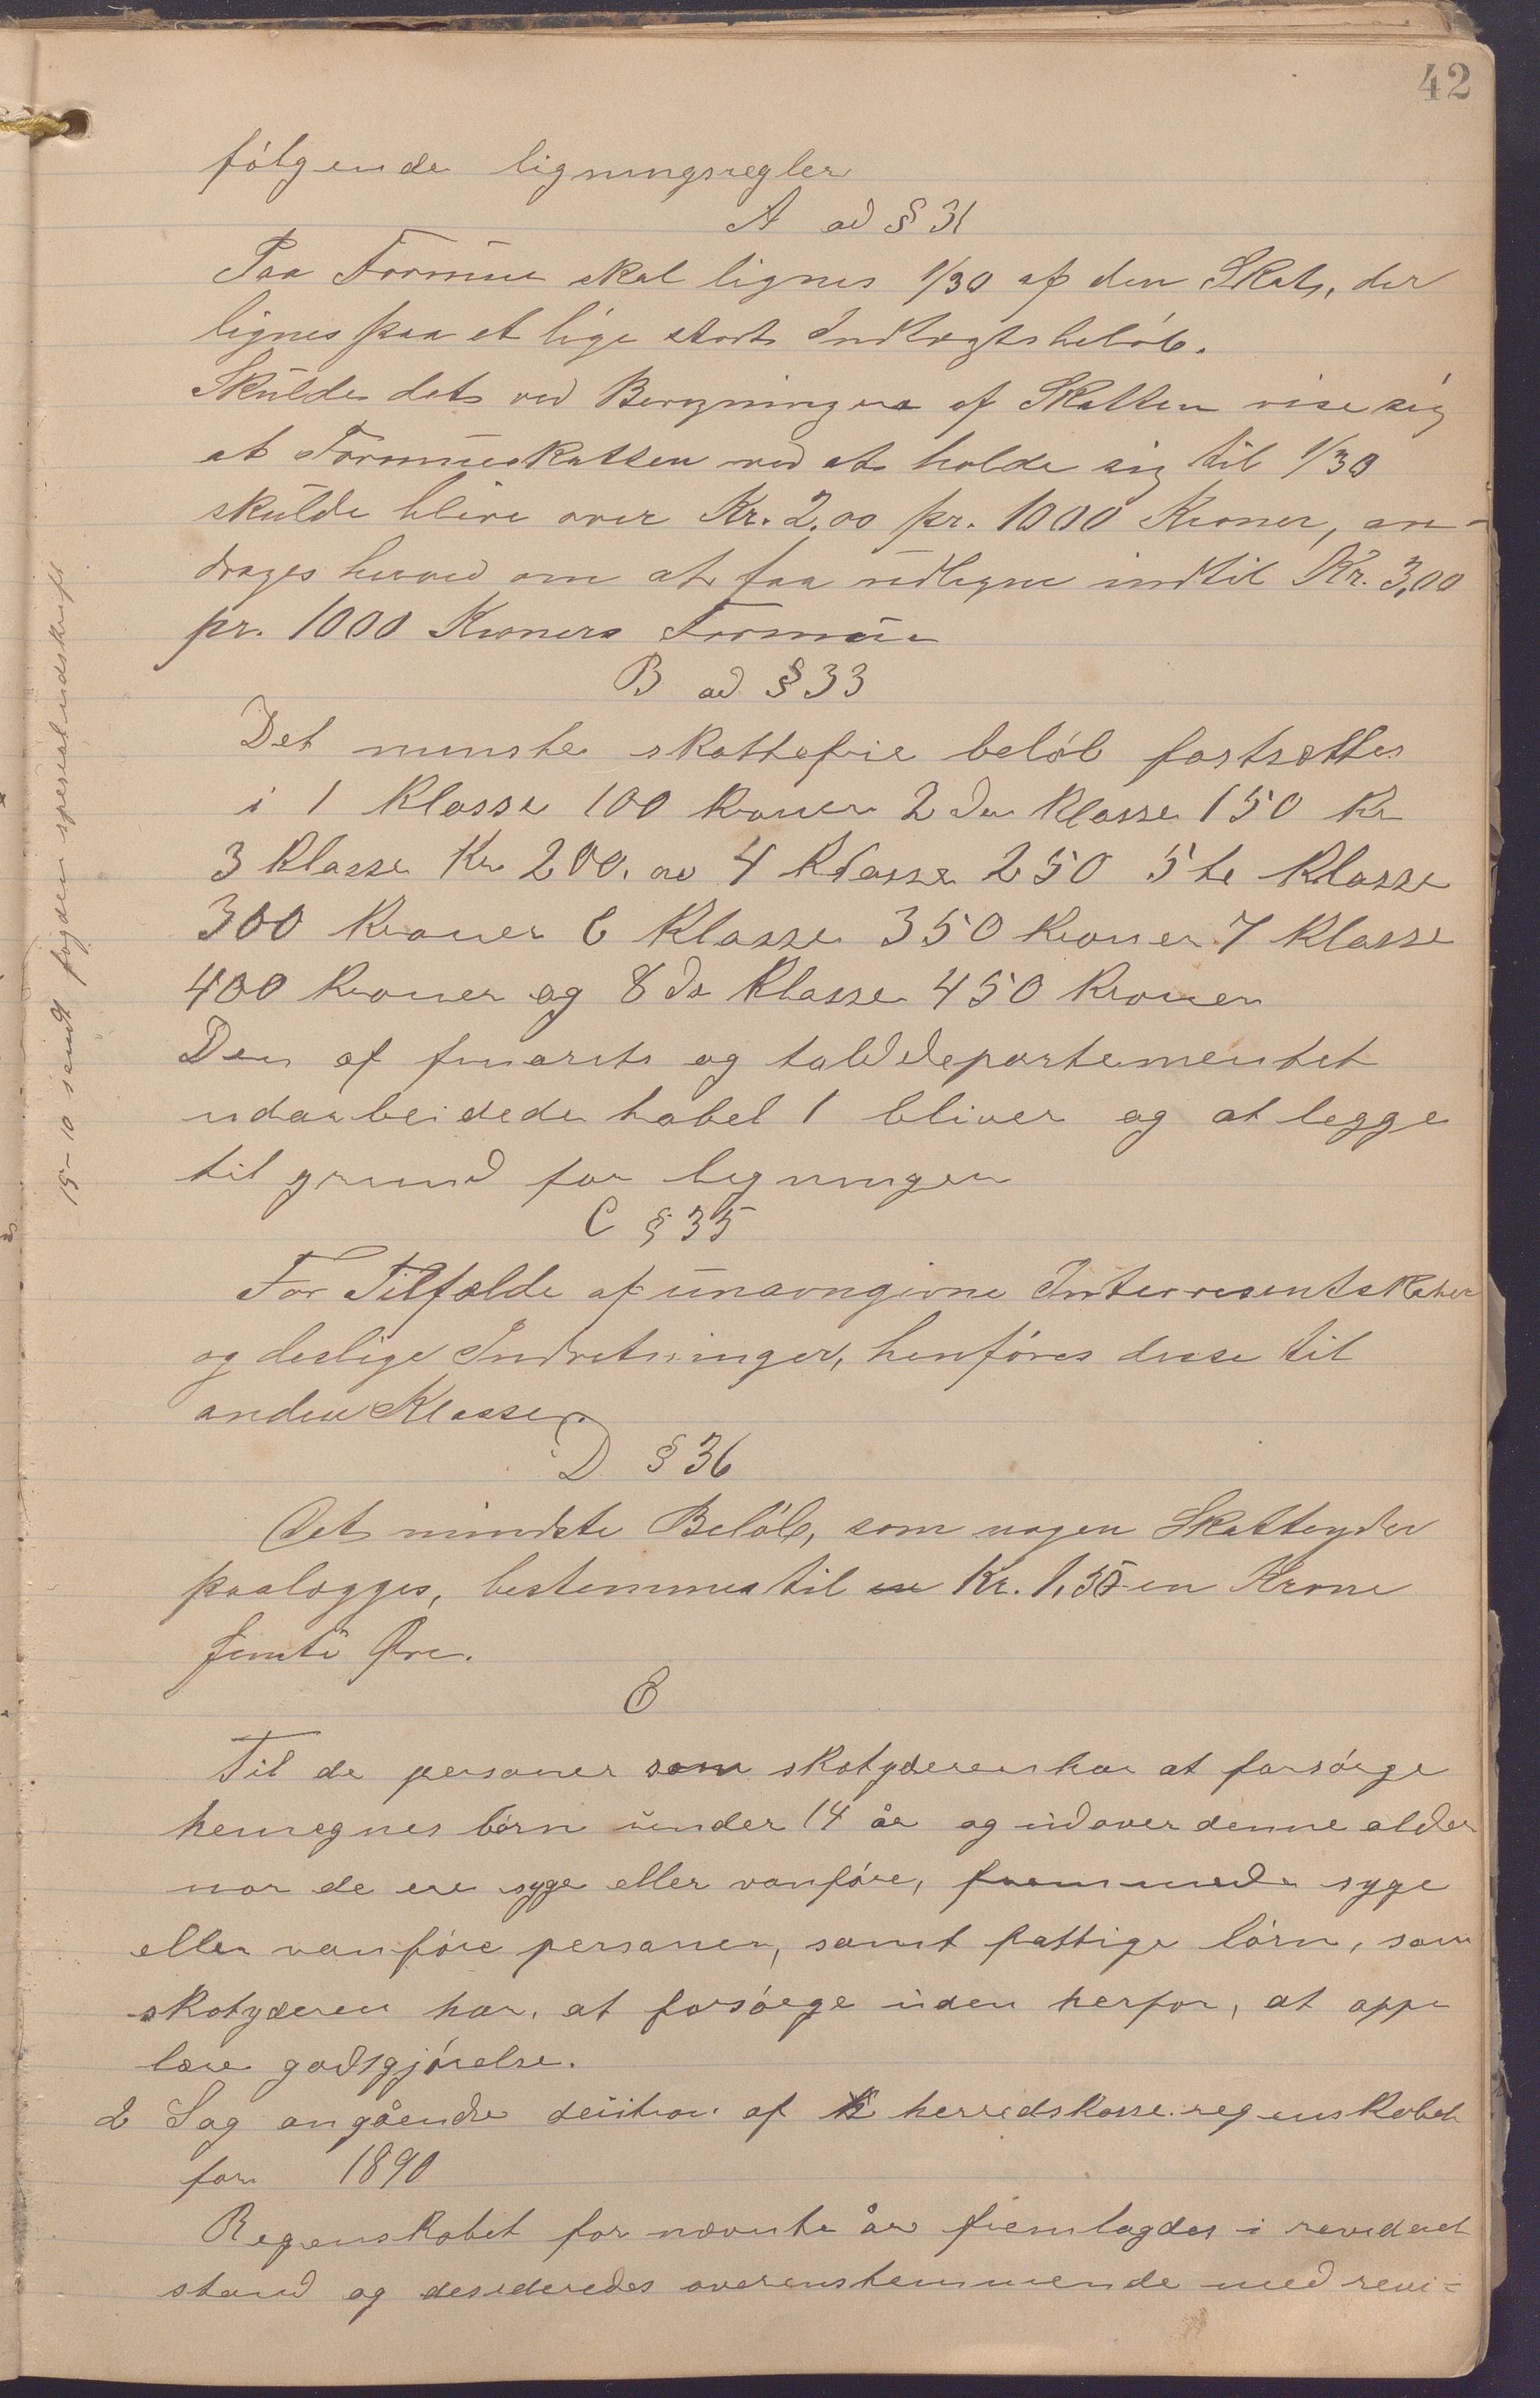 42
følgende ligningsregler
A ad § 31
Paa Formue skal lignes 1/30 af den Skat, der
lignes paa et lige stort Indtægtsbeløb.
Skulde det ved Beregningen af Skatten vise sig
at Formueskatten ved at holde sig til 1/30
skulde blive over Kr. 2,00 pr. 1000 Kroner, an-
drages herved om at faa udligne indtil Kr. 3,00
pr. 1000 Kroners Formue
B ad § 33
Det minste skattefrie beløb fastsættes
i 1 Klasse 100 kroner 2den Klasse 150 Kr
3 Klasse Kr 200. 4 Klasse 250 5te Klasse
300 Kroner 6 Klasse 350 Kroner 7 Klasse
400 kroner og 8de Klasse 450 kroner
Den af finants og tolddepartementet
udarbeidede tabel 1 bliver og at legge
til grund for ligningen
C § 35
For Tilfælde af unavngivne Interresentskaber
og deslige Indretninger, henføres disse til
anden Klasse.
D § 36
Det mindste Beløb, som nogen Skatteyder
paalægges, bestemmes til en Kr. 1,50 en Krone
femti Øre.
E
Til de personer som skatyderen har at forsørge
henregnes børn under 14 år og udover denne alder
nar de ere syge eller vanføre, fremmede syge
eller vanføre personer, samt fattige børn, som
skatyderen har, at forsørge uden herfor, at oppe
bære godtgjørelse.
2 Sag angående decition af herredskasseregenskabet
for 1890
Regenskabet for nævnte år fremlagdes i revideret
stand og desideredes overenstemmende med revi=
15-10 sendt fogden spesialudskrift